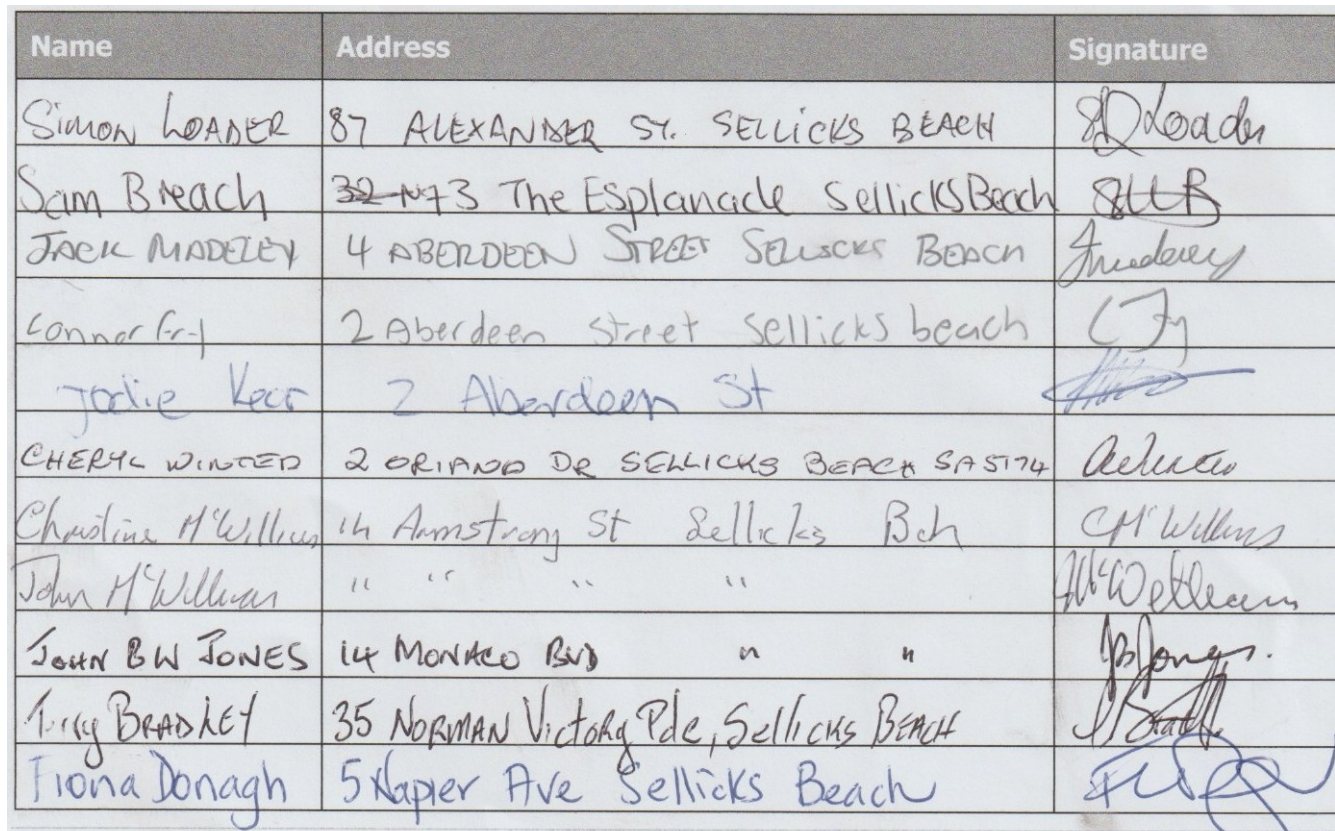 Name Address Signature
Simon LOADER 87 ALEXANDER ST. SELLICKS BEACH SDLoader
Sam Breach 73 The Esplanade Sellicks Beach
JACK MADELEY 4 ABERDEEN STREET SELLICKS BEACH
Connor Fry 2 Aberdeen Street Sellicks beach C Fry
Jodie Kerr 2 Aberdeen St
CHERYL 2 ORIANA DR SELLICKS BEACH SA 5174
Christine McWilliam 14 Armstrong St Sellicks Bch
John McWilliam " " " "
JOHN BW JONES 14 MONACO BVD " " Jones.
BRADLEY 35 NORMAN Victory Pde, Sellicks BEACH
Fiona Donagh 5 Napier Ave Sellicks Beach